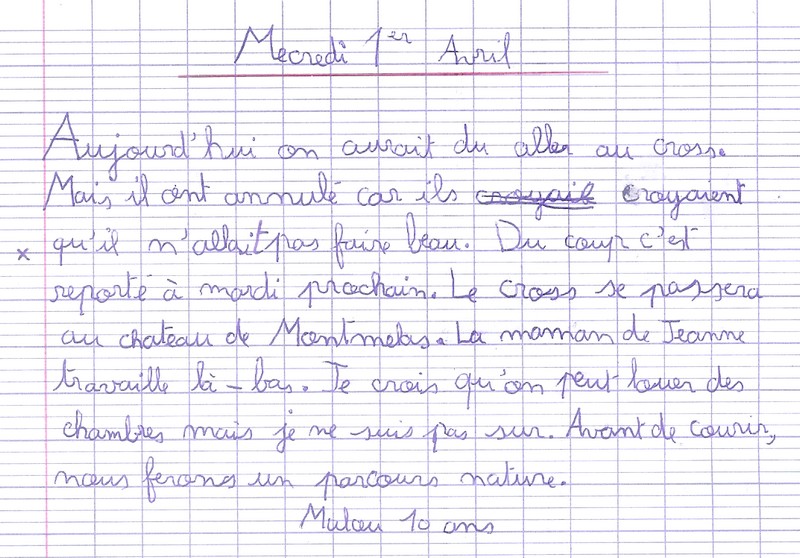 Mecredi 1er Avril
Aujourd'hui on aurait du aller au cross.
Mais il ont annulé car ils croyait croyaient
x qu'il n'allait pas faire beau. Du coup c'est
reporté à mardi prochain. Le cross se passera
au chateau de Montmelas. La maman de Jeanne
travaille là-bas. Je crois qu'on peut louer des
chambres mais je ne suis pas sur. Avant de courir,
nous ferons un parcours nature.
Malou 10 ans